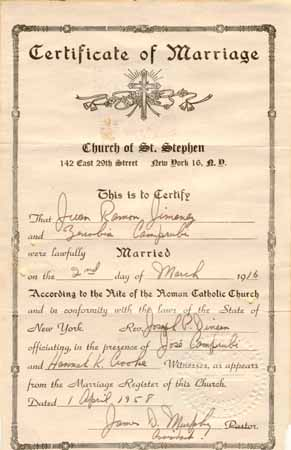 Certificate of Marriage
Church of St. Stephen
142 East 29th Street New York 16, N. Y.
This is to Certify
That Juan Ramon Jimenez
and Zenobia Camprubi
were lawfully Married
on the 2nd day of March 1916
According to the Rite of the Roman Catholic Church
and in conformity with the laws of the State of
New York Rev. Joseph P. Dineen
officiating, in the presence of José Camprubi
and Hannah K. Crooke Witnesses, as appears
from the Marriage Register of this Church.
Dated 1 April 1958
James D. Murphy
Pastor.